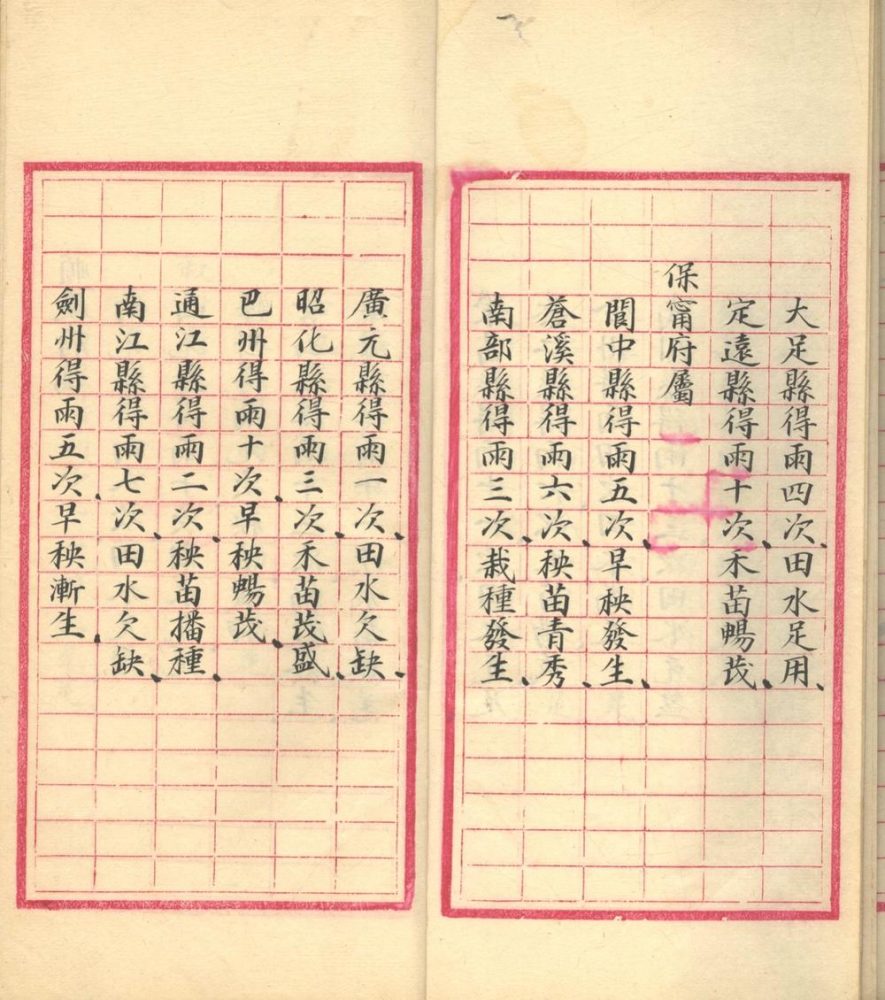 大足縣得雨四次、田水足用、
定遠縣得雨十次、禾苗暢茂、
保甯府屬
閬中縣得雨五次、早秧發生、
蒼溪縣得雨六次、秧苗青秀、
南部縣得雨三次、栽種發生、
廣元縣得雨一次、田水欠缺、
昭化縣得雨三次、禾苗茂盛、
巴州得雨十次、早秧暢茂、
通江縣得雨二次、秧苗播種、
南江縣得雨七次、田水欠缺、
劍州得雨五次、早秧漸生、